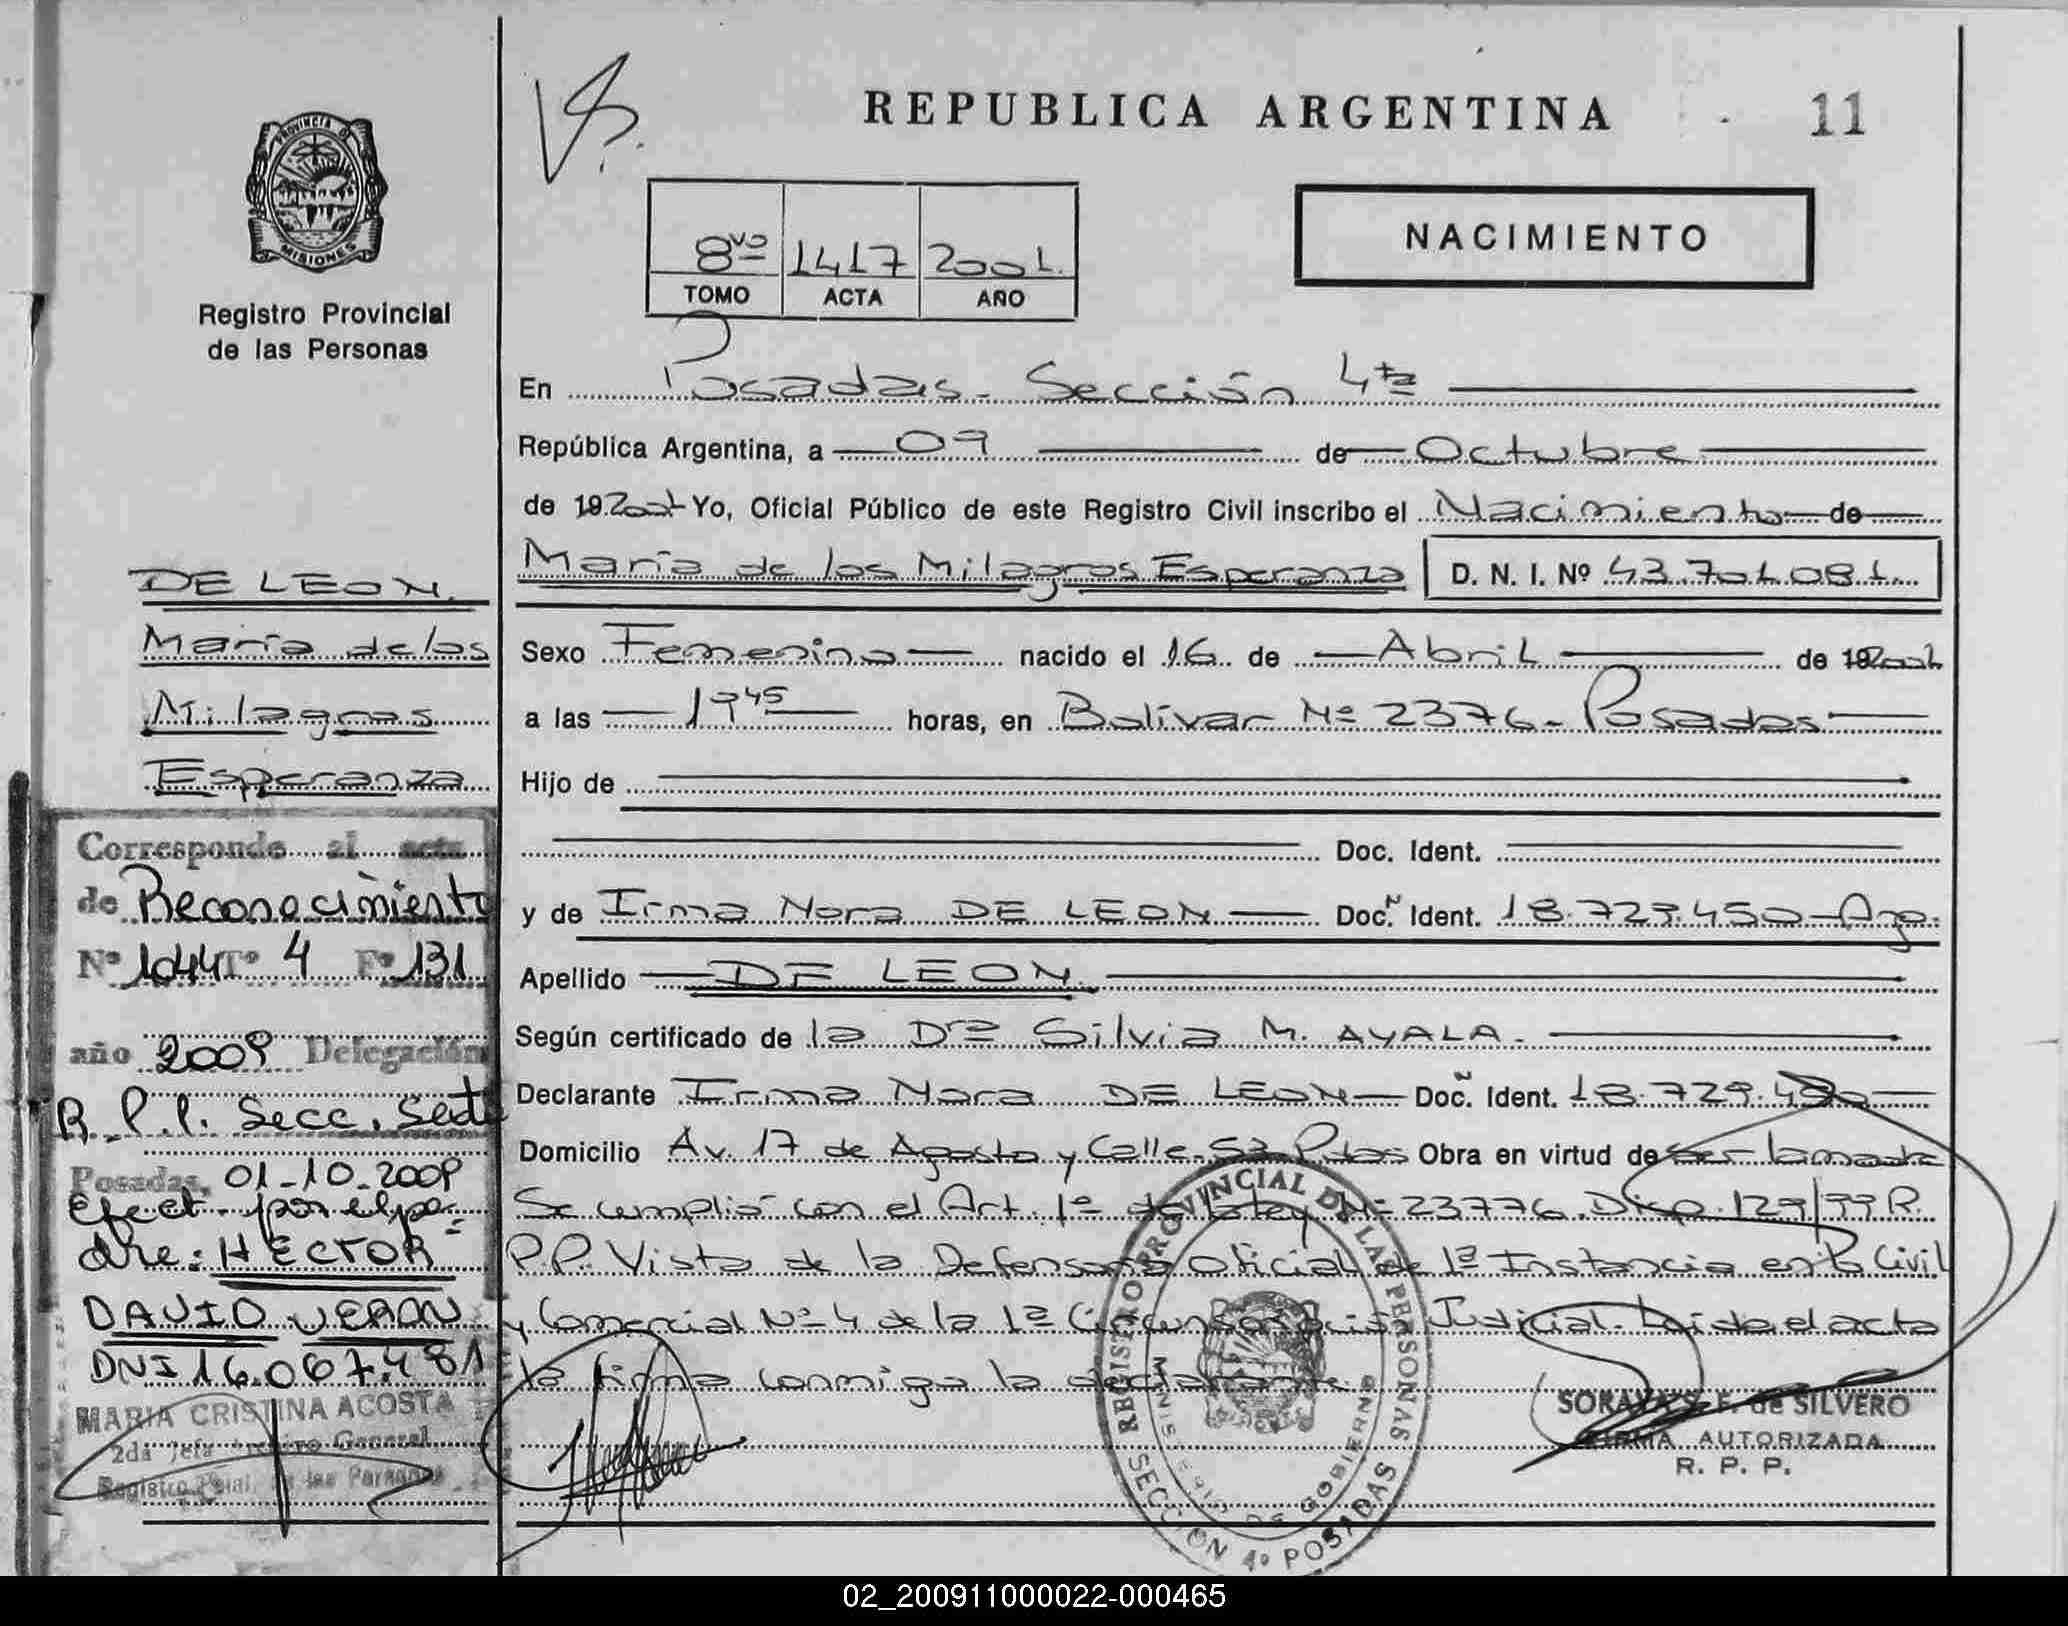 PROVINCIA DE
MISIONES
Registro Provincial
de las Personas
DE LEON.
María de los
Milagros
Esperanza
Corresponde al acta
de Reconocimiento
Nº 1044 Tº 4 Fº 131
año 2009 Delegación
R.P.P. Secc. Sexta
Posadas, 01-10-2009
Efect. por el pa-
dre: HECTOR
DAVID VERON
DNI 16.067.481
MARIA CRISTINA ACOSTA
2da Jefa Archivo General
Registro Pcial. de las Personas
REPUBLICA ARGENTINA
11
8vo 1417 2001.
TOMO ACTA AÑO
NACIMIENTO
En Posadas - Sección 4ta
República Argentina, a 09 de Octubre
de 19 2001 Yo, Oficial Público de este Registro Civil inscribo el Nacimiento de
María de los Milagros Esperanza D. N. I. Nº 43.701.081
Sexo Femenino nacido el 16 de Abril de 19 2001
a las 19 45 horas, en Bolívar Nº 2376 - Posadas
Hijo de
Doc. Ident.
y de Irma Nora DE LEON Doc. N Ident. 18.729.450 - Arg.
Apellido DE LEON.
Según certificado de la Dra Silvia M. AYALA.
Declarante Irma Nora DE LEON Doc. N Ident. 18.729.450
Domicilio Av. 17 de Agosto y Calle 53 Pdas Obra en virtud de ser la madre
Se cumplió con el Art. 1º de la Ley Nº 23776. Disp. 129/99 R.
P.P. Vista de la Defensoría Oficial de 1ª Instancia en lo Civil
y Comercial Nº 4 de la 1ª Circunscripción Judicial. Leida el acta
la firma conmigo la declarante.
REGISTRO PROVINCIAL DE LAS PERSONAS
MINISTERIO DE GOBIERNO
SECCION 4º POSADAS
SORAYA S. F. de SILVERO
FIRMA AUTORIZADA
R. P. P.
02_200911000022-000465